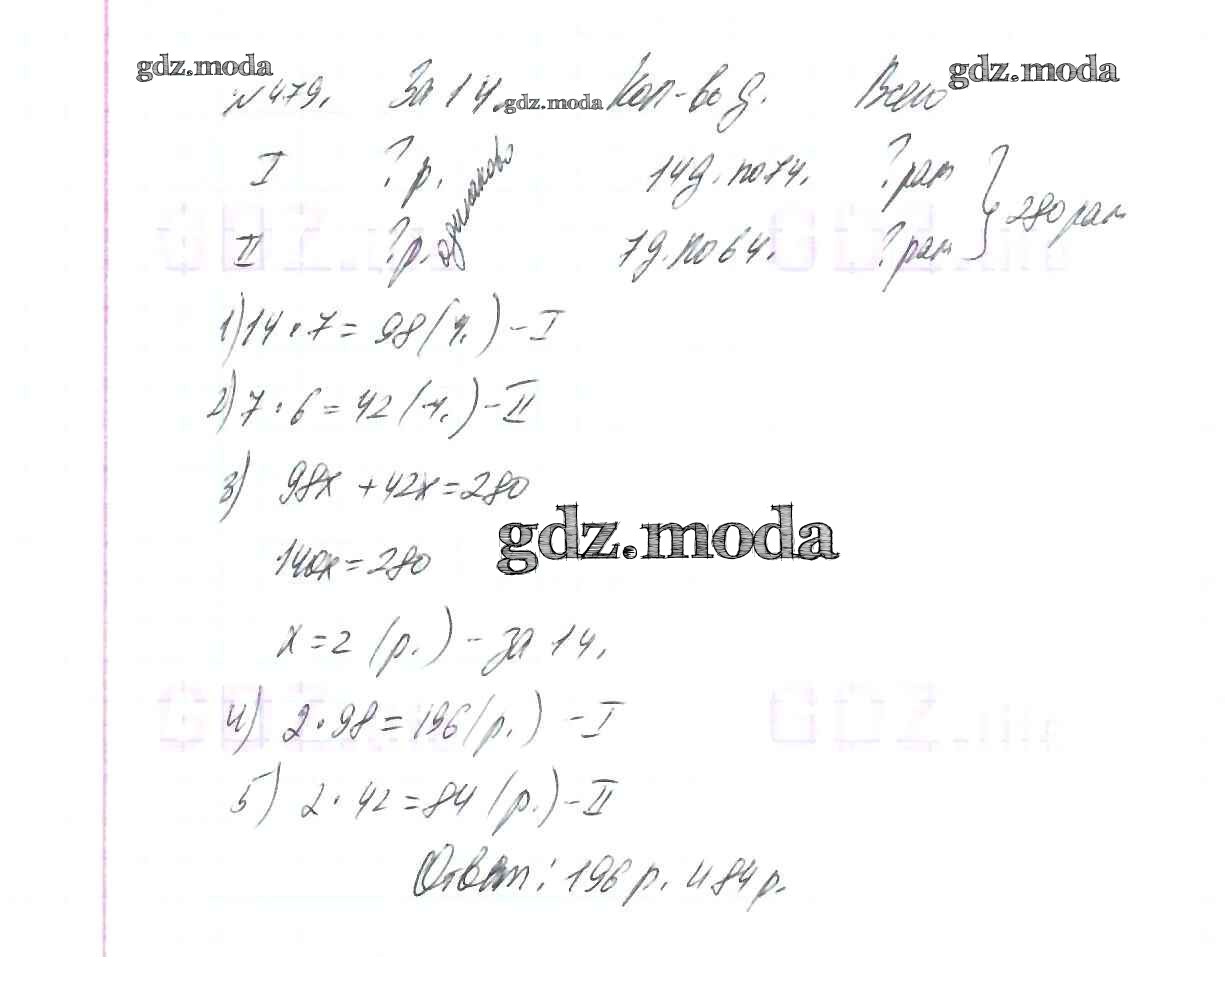 gdz.moda
gdz.moda
№ 479. За 1 ч. gdz.moda Кол-во д. Всего
I ? р. одинаково 14 д. по 7 ч. ? рам
II ? р. 7 д. по 6 ч. ? рам } 280 рам
1) 14 · 7 = 98 (ч.) - I
2) 7 · 6 = 42 (ч.) - II
3) 98x + 42x = 280
gdz.moda
140x = 280
x = 2 (р.) - за 1 ч.
4) 2 · 98 = 196 (р.) - I
5) 2 · 42 = 84 (р.) - II
Ответ: 196 р. и 84 р.